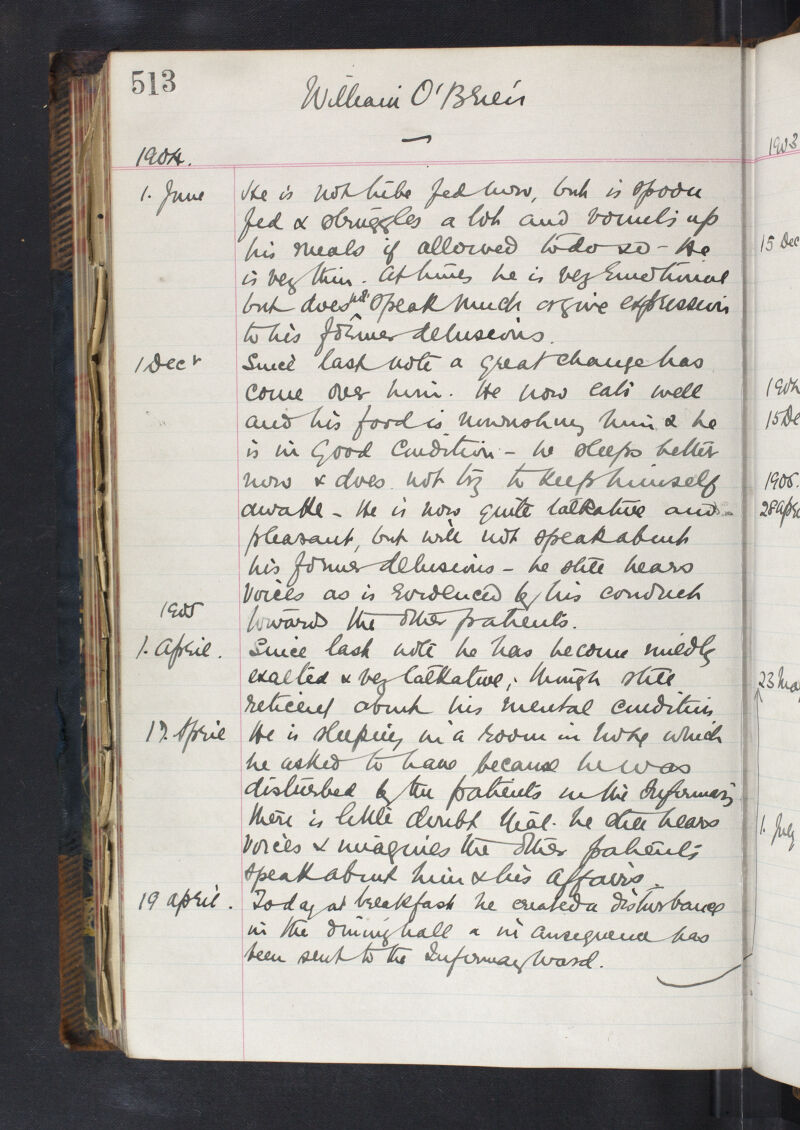 513
William O'Brien
1904.
1. June He is not tube fed now, but is spoon
fed & struggles a lot and vomits up
his meals if allowed to do so - He
is very thin. At times he is very Emotional
but does not speak much or give expression
to his former delusions.
1 Decr Since last note a great change has
come over him. He now eats well
and his food is nourishing him & he
is in good condition - he sleeps better
now & does not try to keep himself
awake - He is now quite talkative and
pleasant, but will not speak about
his former delusions - he still hears
voices as is evidenced by his conduct
1905
towards the other patients.
1. April. Since last note he has become mildly
exalted & very talkative, though still
reticent about his mental condition
17. April He is sleeping in a room in which
he asked to have because he was
disturbed by the patients in the Infirmary
there is little doubt that he still hears
voices & imagines the other patients
speak about him & his affairs.
19 April. Today at breakfast he created a disturbance
in the dining hall & in consequence has
been sent to the Infirmary Ward.
1903
15 Dec
1904
15 De
1905.
28 Apri
23 Ma
1. July